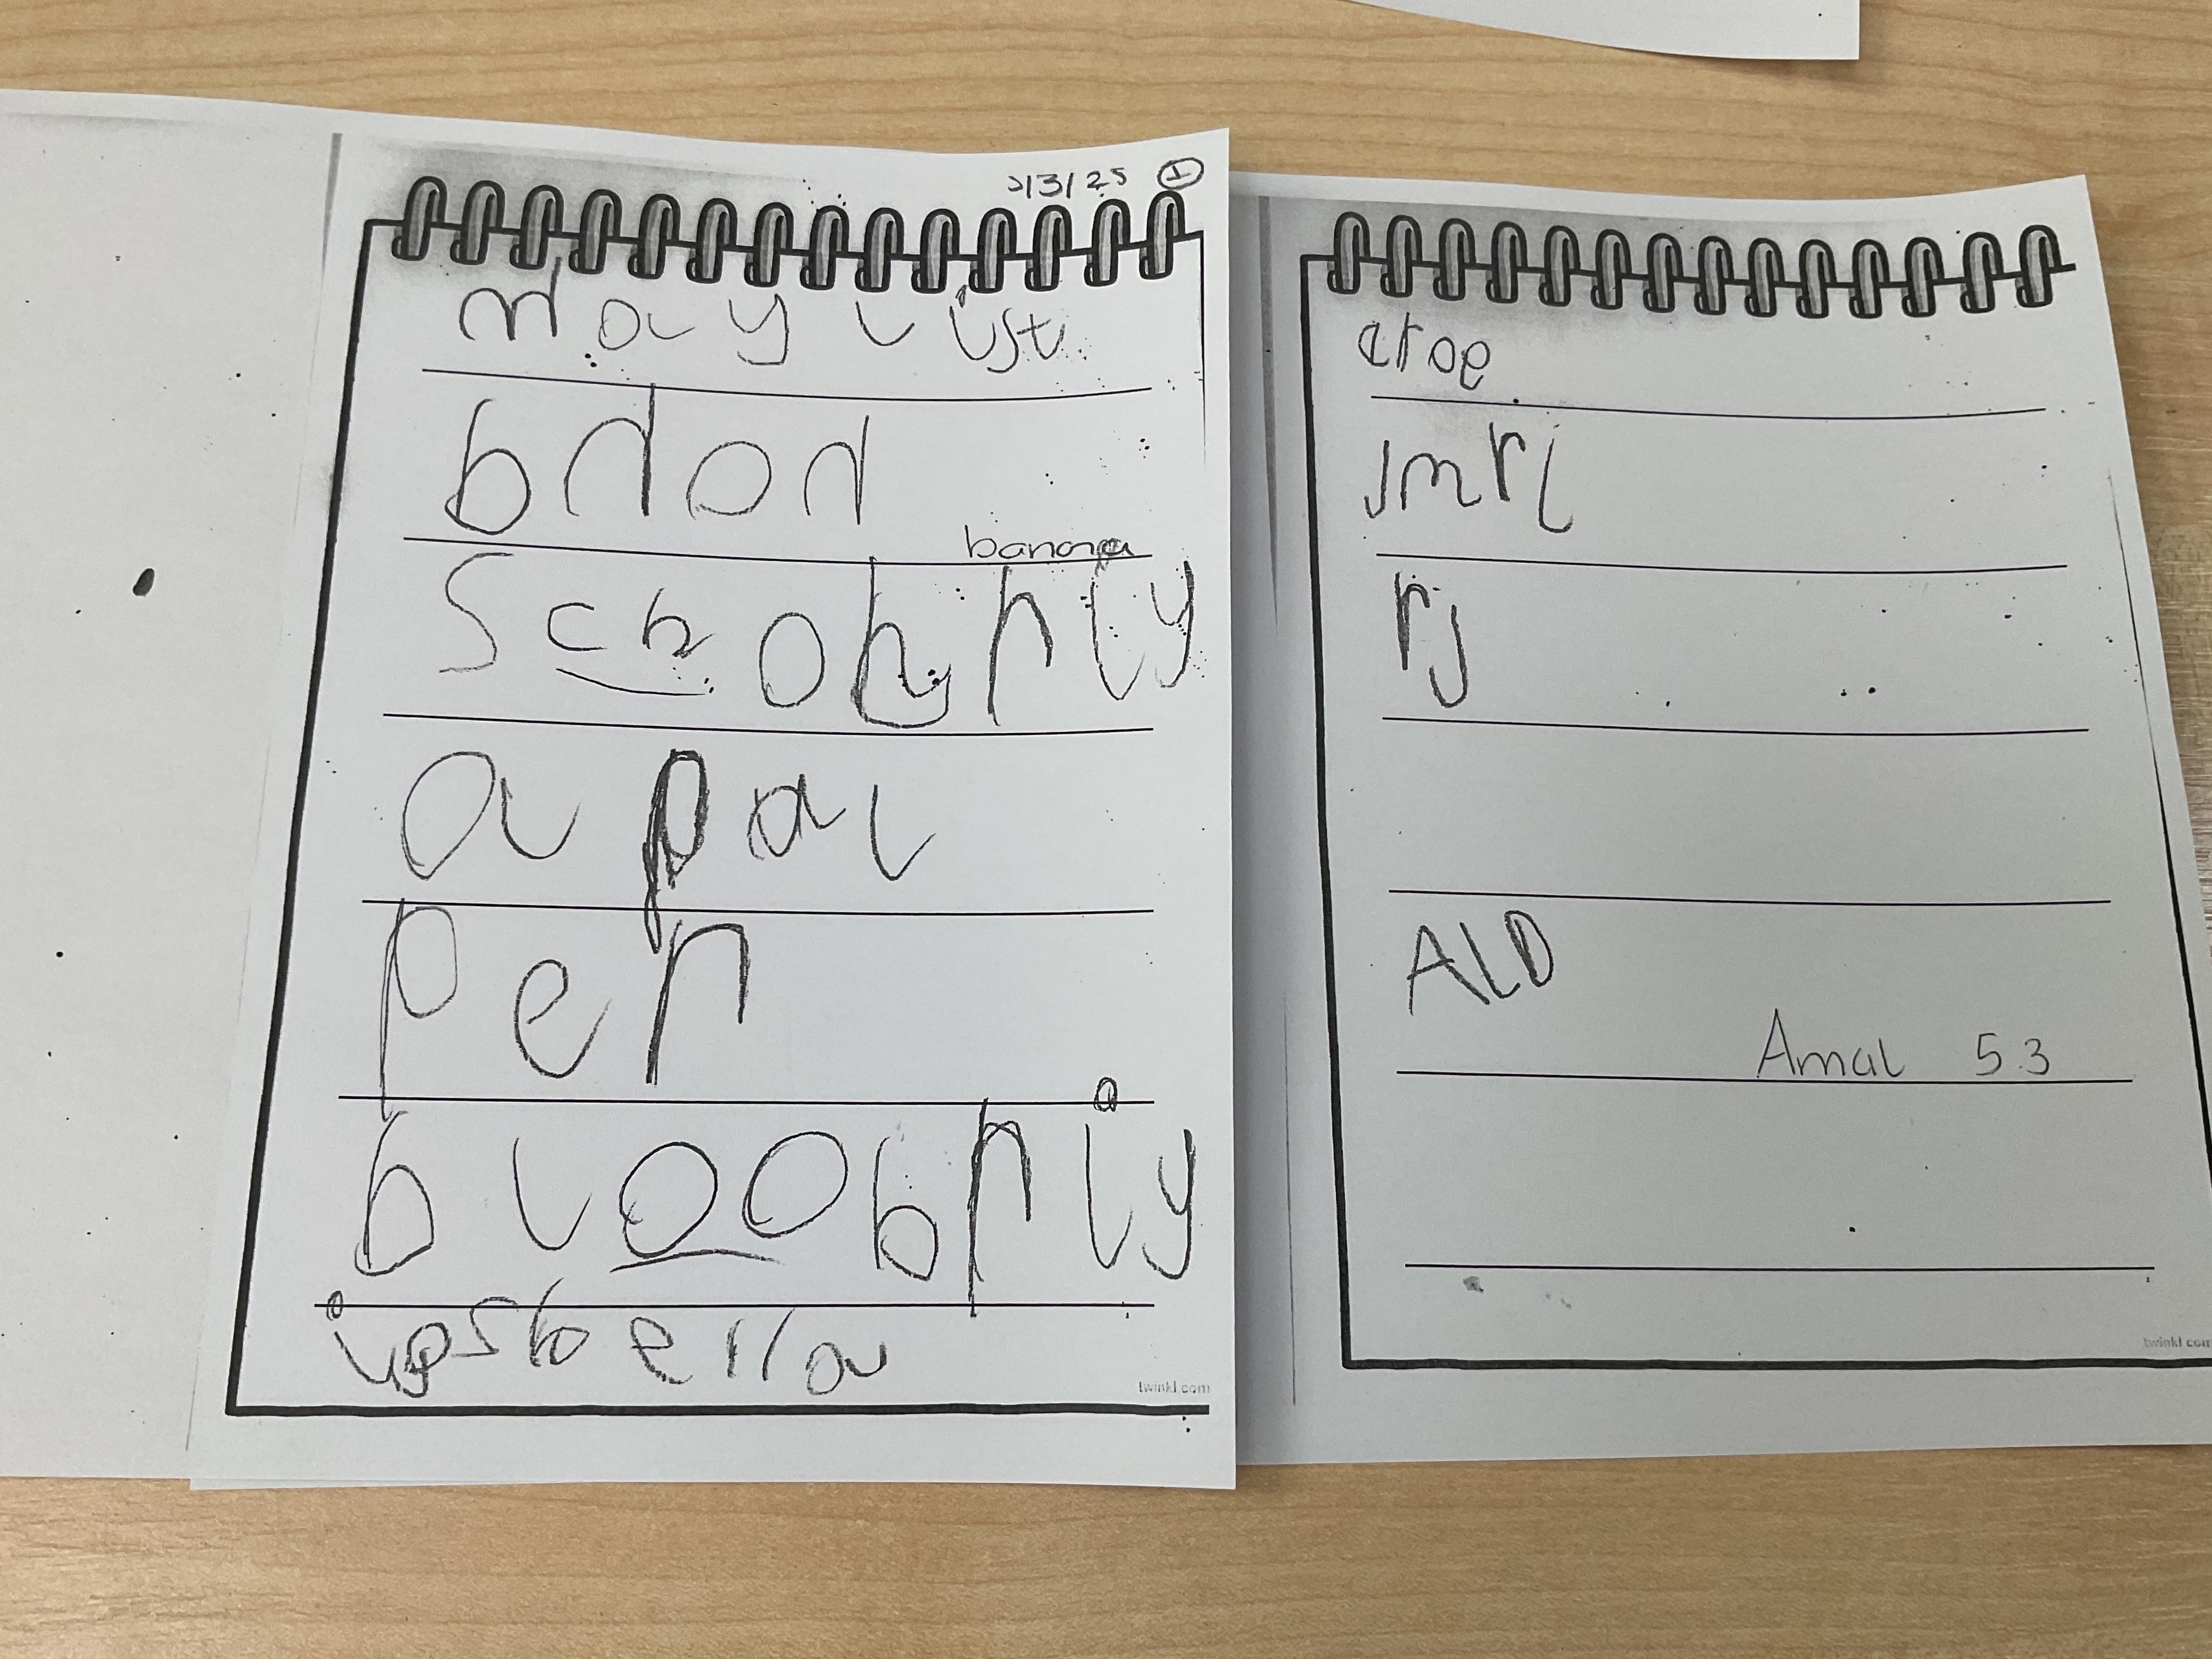 /3/25 1
may list
bnon
banana
Schobrly
apal
pen
bloobrly
a
twinkl.com
atoe
jmrl
rj
ALD
Amal 5.3
twinkl.com